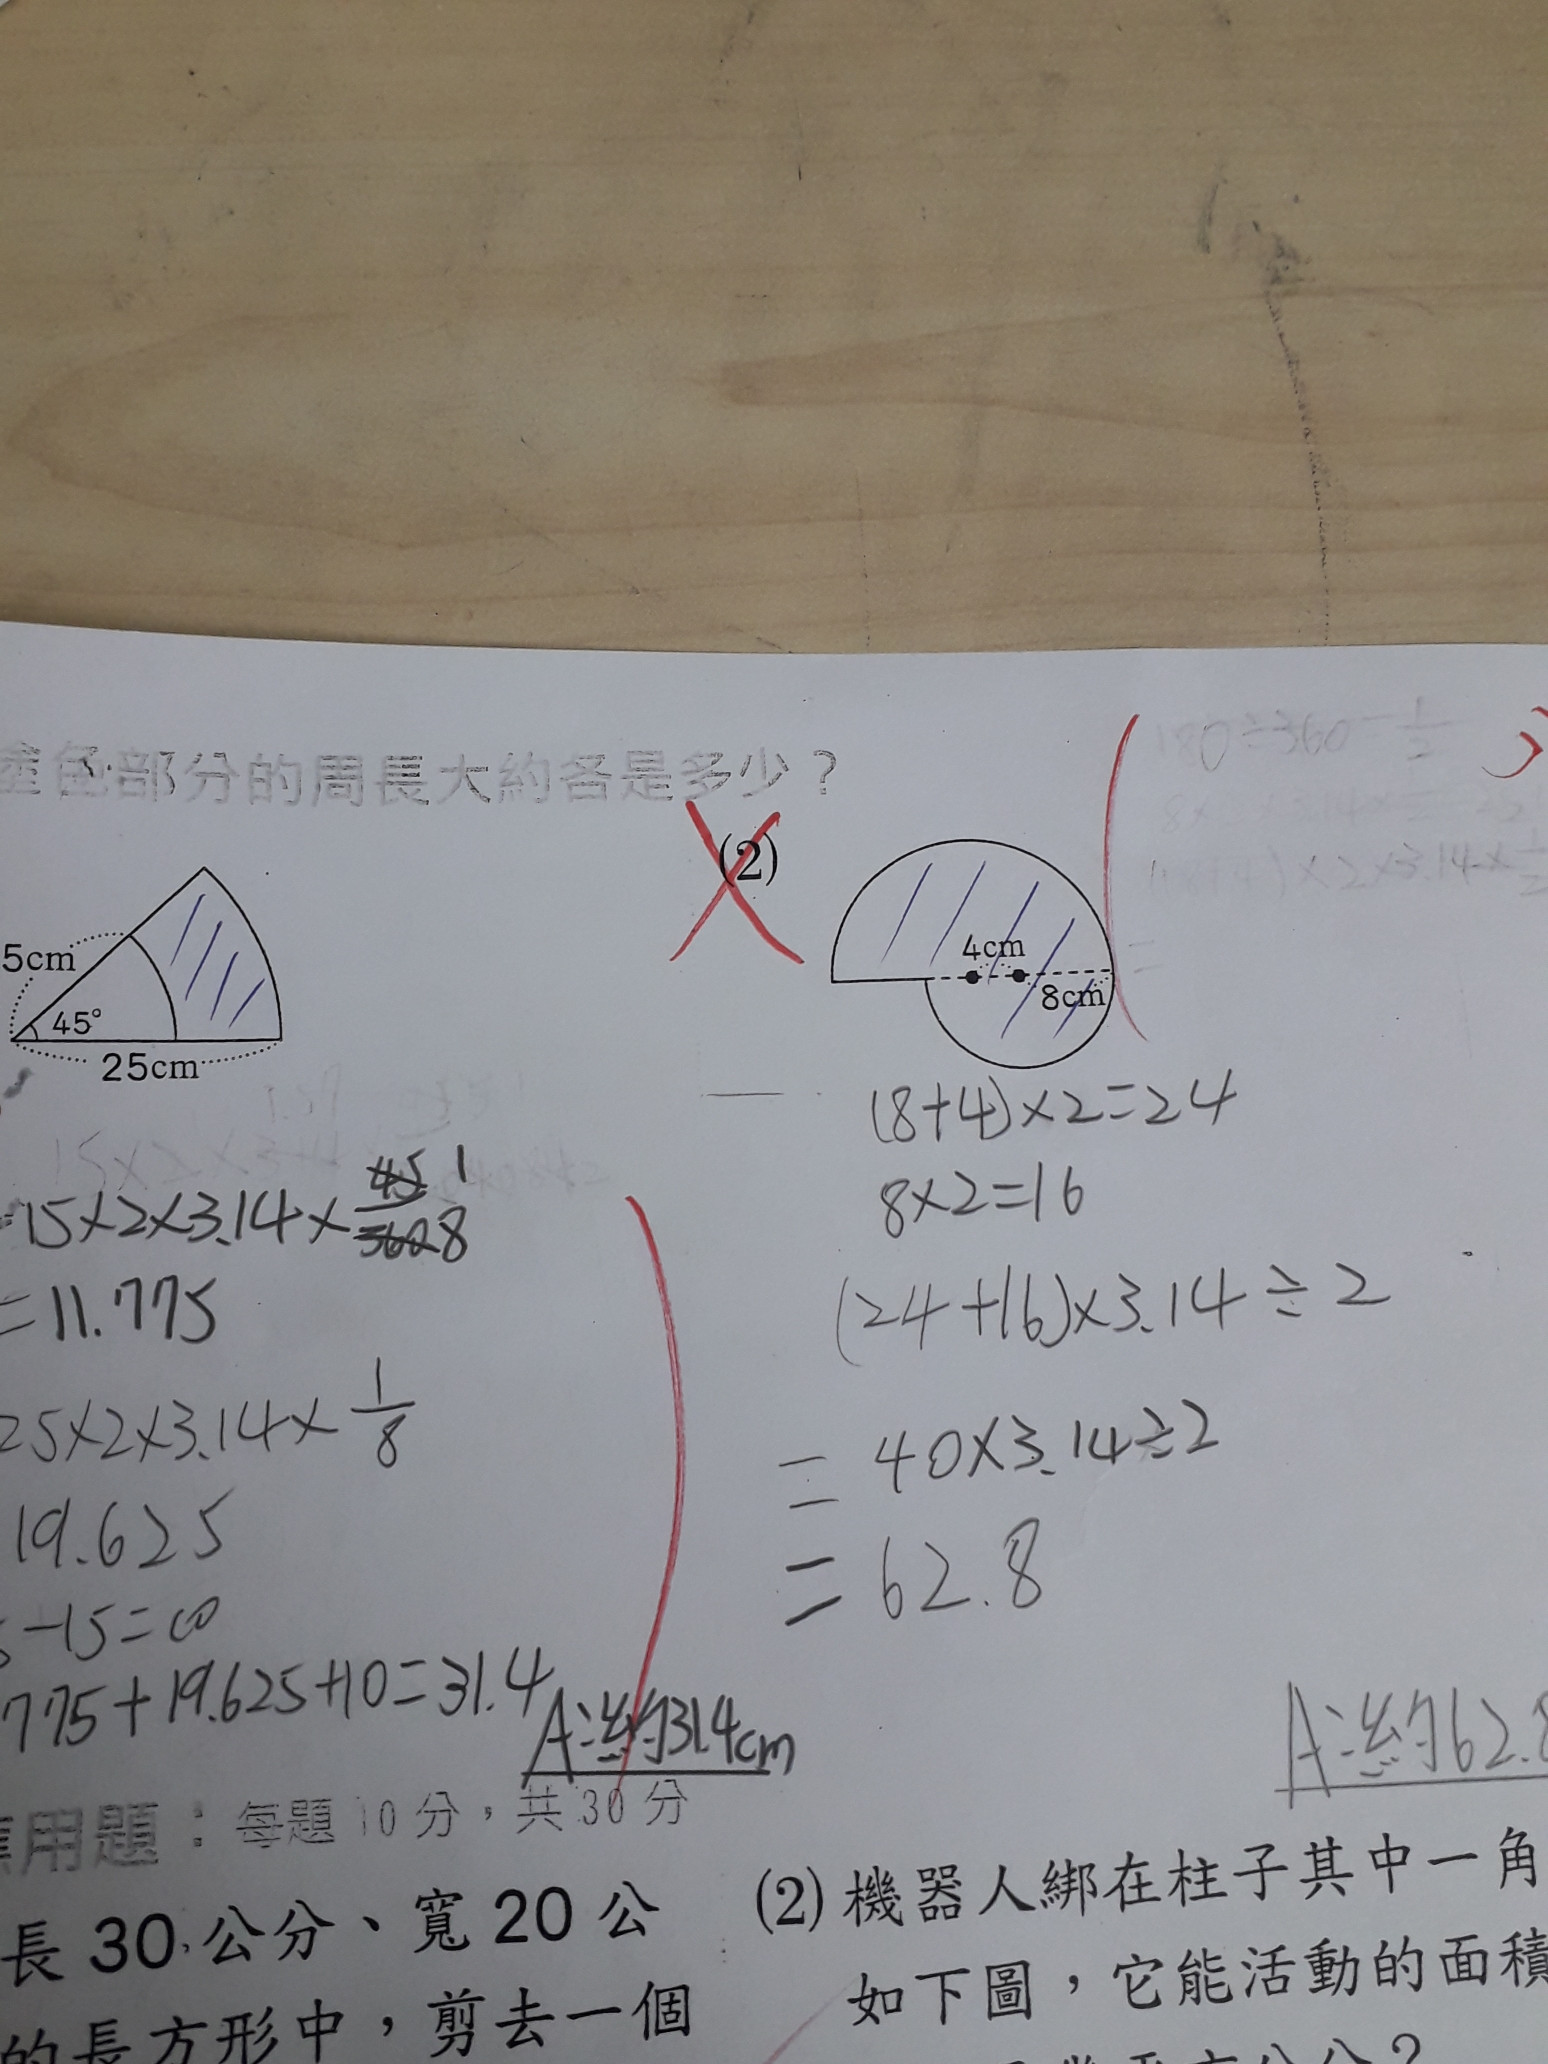 塗色部分的周長大約各是多少？
5cm
45°
25cm
15×2×3.14×45/360 1/8
=11.775
25×2×3.14×1/8
19.625
-15=10
775+19.625+10=31.4
A:約31.4cm
(2)
4cm
8cm
180÷360=1/2
(8+4)×2=24
8×2=16
(24+16)×3.14÷2
=40×3.14÷2
=62.8
A:約62.8
應用題：每題10分，共30分
長30公分、寬20公
的長方形中，剪去一個
(2)機器人綁在柱子其中一角
如下圖，它能活動的面積